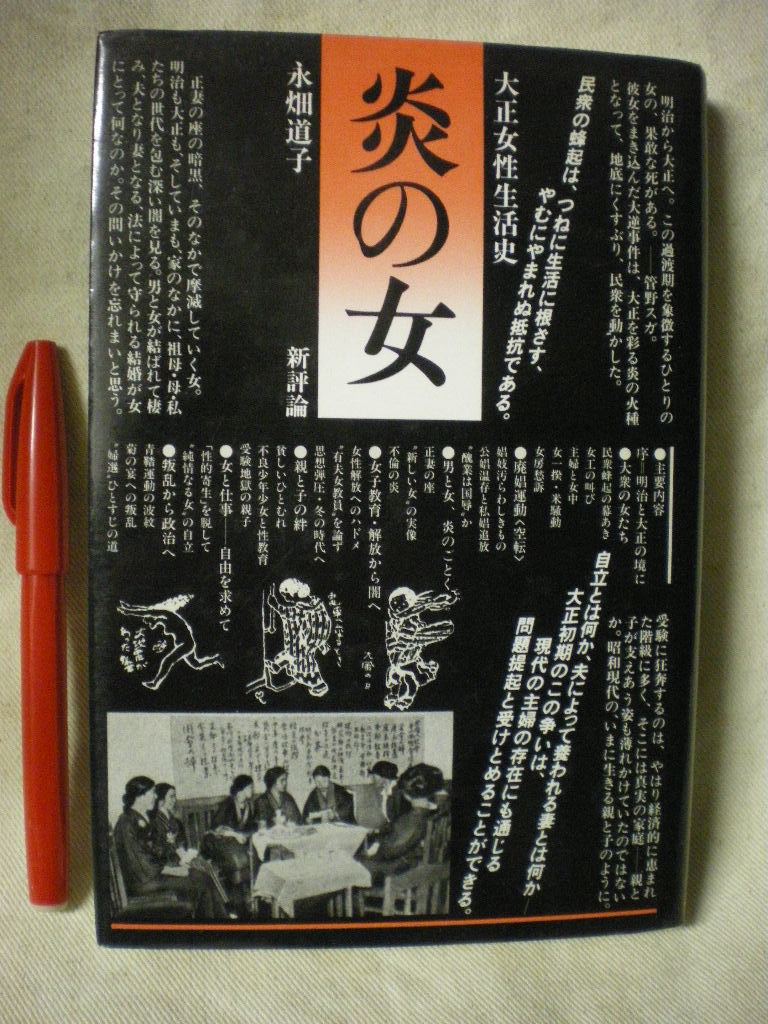 炎の女
大正女性生活史
永畑道子
新評論
明治から大正へ。この過渡期を象徴するひとりの
女の、果敢な死がある。——管野スガ。
彼女をまき込んだ大逆事件は、大正を彩る炎の火種
となって、地底にくすぶり、民衆を動かした。
民衆の蜂起は、つねに生活に根ざす、
やむにやまれぬ抵抗である。
正妻の座の暗黒、そのなかで摩滅していく女。
明治も大正も、そしていまも、家のなかに、祖母・母・私
たちの世代を包む深い闇を見る。男と女が結ばれて棲
み、夫となり妻となる、法によって守られる結婚が女
にとって何なのか。その問いかけを忘れまいと思う。
●主要内容
序—明治と大正の境に
●大衆の女たち
民衆蜂起の幕あき
女工の叫び
主婦と女中
女一揆・米騒動
女房愁訴
●廃娼運動〈空転〉
娼妓汚らわしきもの
公娼温存と私娼追放
“醜業は国辱”か
●男と女、炎のごとく
正妻の座
“新しい女”の実像
不倫の炎
●女子教育・解放から闇へ
女性解放へのハドメ
“有夫女教員”を論ず
思想弾圧・冬の時代へ
●親と子の絆
貧しいひとむれ
不良少年少女と性教育
受験地獄の親子
●女と仕事——自由を求めて
「性的寄生」を脱して
“純情なる女”の自立
●叛乱から政治へ
青鞜運動の波紋
菊の宴への叛乱
“婦選”ひとすじの道
受験に狂奔するのは、やはり経済的に恵まれ
た階級に多く、そこには真実の家庭——親と
子が支えあう姿も薄れかけていたのではない
か。昭和現代の、いまに生きる親と子のように。
自立とは何か、夫によって養われる妻とは何か—
大正初期のこの争いは、
現代の主婦の存在にも通じる
問題提起と受けとめることができる。